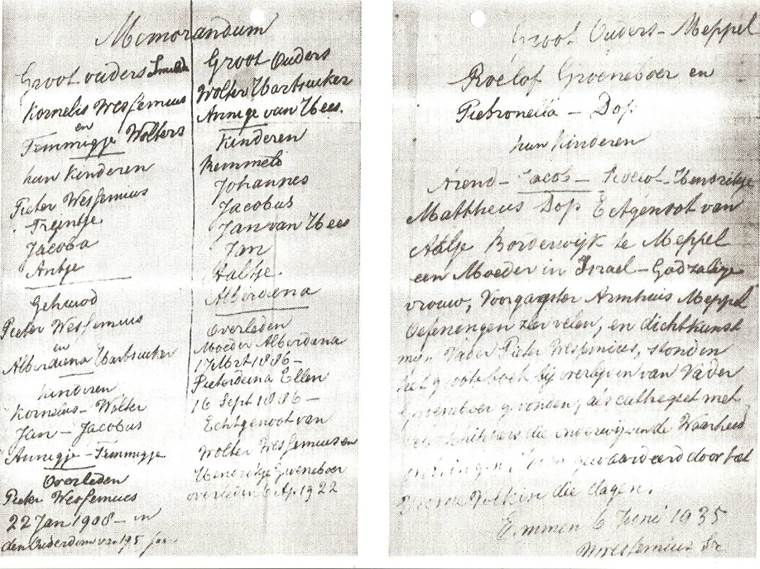 Memorandum
Groot ouders Smilde
Kornelis Wessemius
en
Femmigje Wolters
hun kinderen
Pieter Wessemius
Trijntje
Jacoba
Antje
Gehuwd
Pieter Wessemius
en
Alberdiena Hartsuiker
kinderen
Kornelius - Wolter
Jan - Jacobus
Annegje - Femmigje
Overleden
Pieter Wessemius
22 Jan 1908 - in
den Ouderdom van 95 jaar
Groot Ouders
Wolter Hartsuiker
Annigje van Hees
Kinderen
Remmelt
Johannes
Jacobus
Jan van Hees
Jan
Aaltje
Alberdiena
Overleden
Moeder Alberdiena
17 Mrt 1886 -
Pieterdiena Ellen
16 Sept 1886 -
Echtgenoot van
Wolter Wessemius en
Hendrikje Groeneboer
overleden 6 Ap. 1922
Groot Ouders - Meppel
Roelof Groeneboer en
Pietronella - Dop
hun kinderen
Arend - Jacob - Roelof - Hendrikje
Mattheus Dop Echtgenoot van
Aaltje Borderwijk te Meppel
een Moeder in Israel - Godzalige
vrouw, Voorgangster Armhuis Meppel
Oefeningen zeer velen, en dichtkunst
Vader Pieter Wessemius, stonden
het groote boek bij overlijden van Vader
Groeneboer gevonden, als catechegeet met
die in de Waarheid
gewaardeerd door het
volk in die dagen.
Emmen 6 Juni 1935
Wessemius Sr